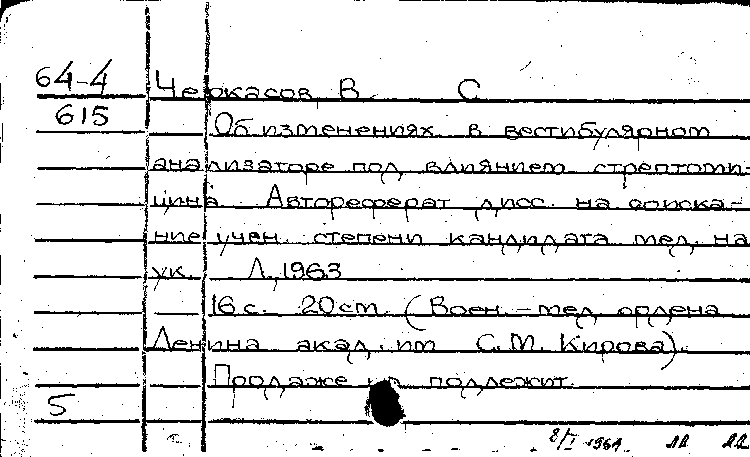 64-4 Черкасов, В. С.
615 Об изменениях в вестибулярном
анализаторе под влиянием стрептоми-
цина. Автореферат дисс. на соиска-
ние учен. степени кандидата мед. на-
ук. Л., 1963
16 с. 20 см. (Воен.-мед. ордена
Ленина акад. им С.М. Кирова).
Продаже не подлежит.
5
8/I 1964